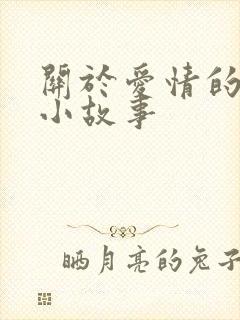 關於愛情的
小故事
晒月亮的兔子